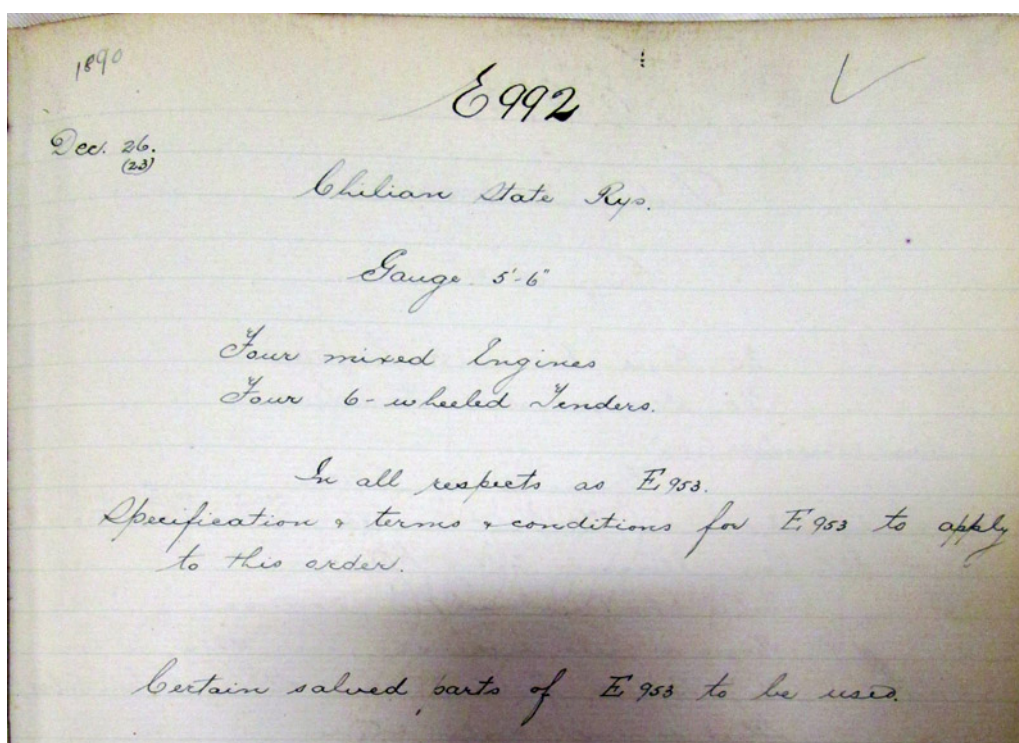 1890
E992
Dec. 26.
(23)
Chilian State Rys.
Gauge 5'-6"
Four mixed Engines
Four 6-wheeled Tenders.
In all respects as E953.
Specification & terms & conditions for E953 to apply
to this order.
Certain salved parts of E953 to be used.